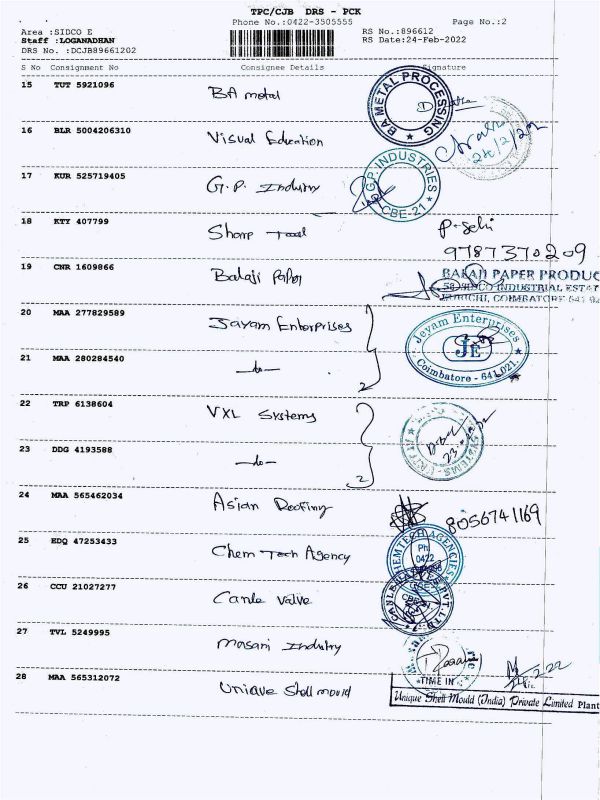 TPC/CJB DRS - PCK
Phone No.:0422-3505555 Page No.:2
Area :SIDCO E RS No.:896612
Staff :LOGANADHAN RS Date:24-Feb-2022
DRS No. :DCJB89661202
S No Consignment No Consignee Details Signature
15 TUT 5921096 BA metal
BA METAL PROCESSING
16 BLR 5004206310 Visual Education
17 KUR 525719405 G.P. Industry
G.P. INDUSTRIES CBE-21
18 KTY 407799 Sharp Tool
9787370209
19 CNR 1609866 Balaji Paper
BALAJI PAPER PRODUC
INDUSTRIAL ESTAT
KURICHI, COIMBATORE
20 MAA 277829589 Jayam Enterprises
Jeyam Enterprises
JE
Coimbatore - 641 021.
21 MAA 280284540 -do-
2
22 TRP 6138604 VXL Systems
23 DDG 4193588 -do-
2
24 MAA 565462034 Asian Roofing
8056741169
25 EDQ 47253433 Chem Tech Agency
CHEMTECH AGENCIES
Ph:
0422
26 CCU 21027277 Canle Valve
27 TVL 5249995 Masani Industry
28 MAA 565312072 Unique Shell mould
TIME IN
Unique Shell Mould (India) Private Limited Plant